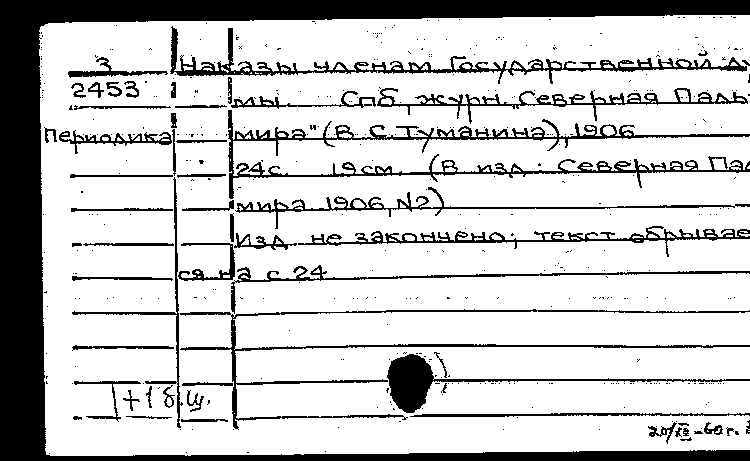 3 Наказы членам Государственной ду
2453 мы. Спб, журн. „Северная Паль
Периодика мира" (В. С. Туманина), 1906
24с. 19см. (В изд.: Северная Пал
мира 1906, №2)
Изд не закончено; текст обрывае
ся на с 24
+1 б.ш.
20/XII-60г.